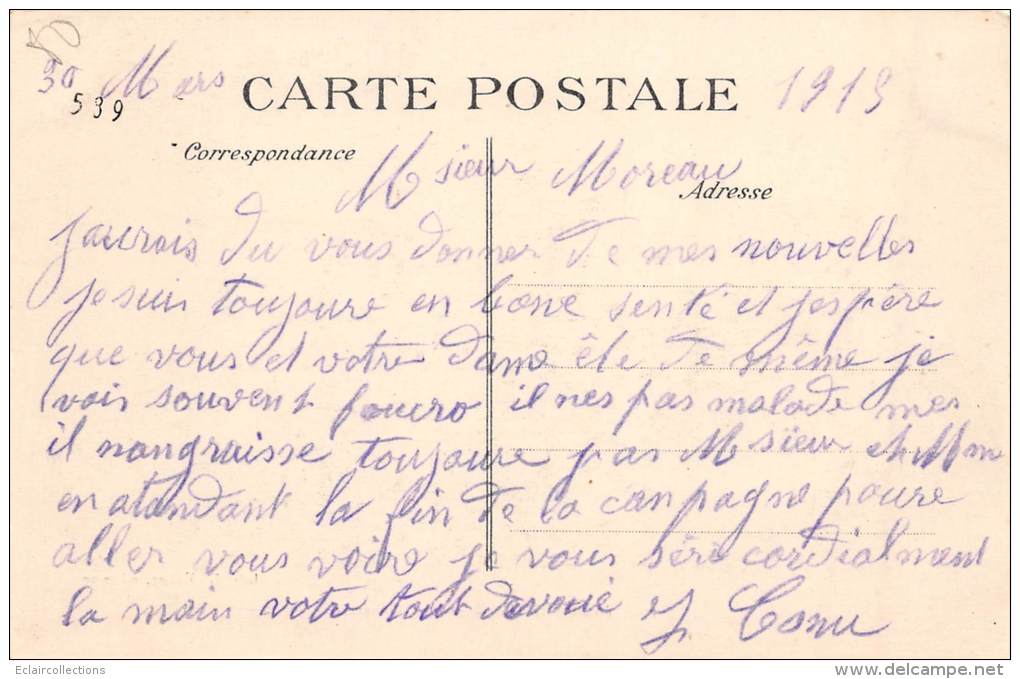 30 Mars CARTE POSTALE 1915
539
Correspondance Msieur Moreau
Adresse
Jaurais du vous donner de mes nouvelles
je suis toujoure en bone senté et jespére
que vous et votre dame éte de même je
vois souvent il nes pas malade mes
il nangraisse toujoure pas Msieur et Mm
en atandant la fin de la canpagne poure
aller vous voire je vous sére cordialment
la main votre tout devoué J. Conu
Eclaircollections
www.delcampe.net